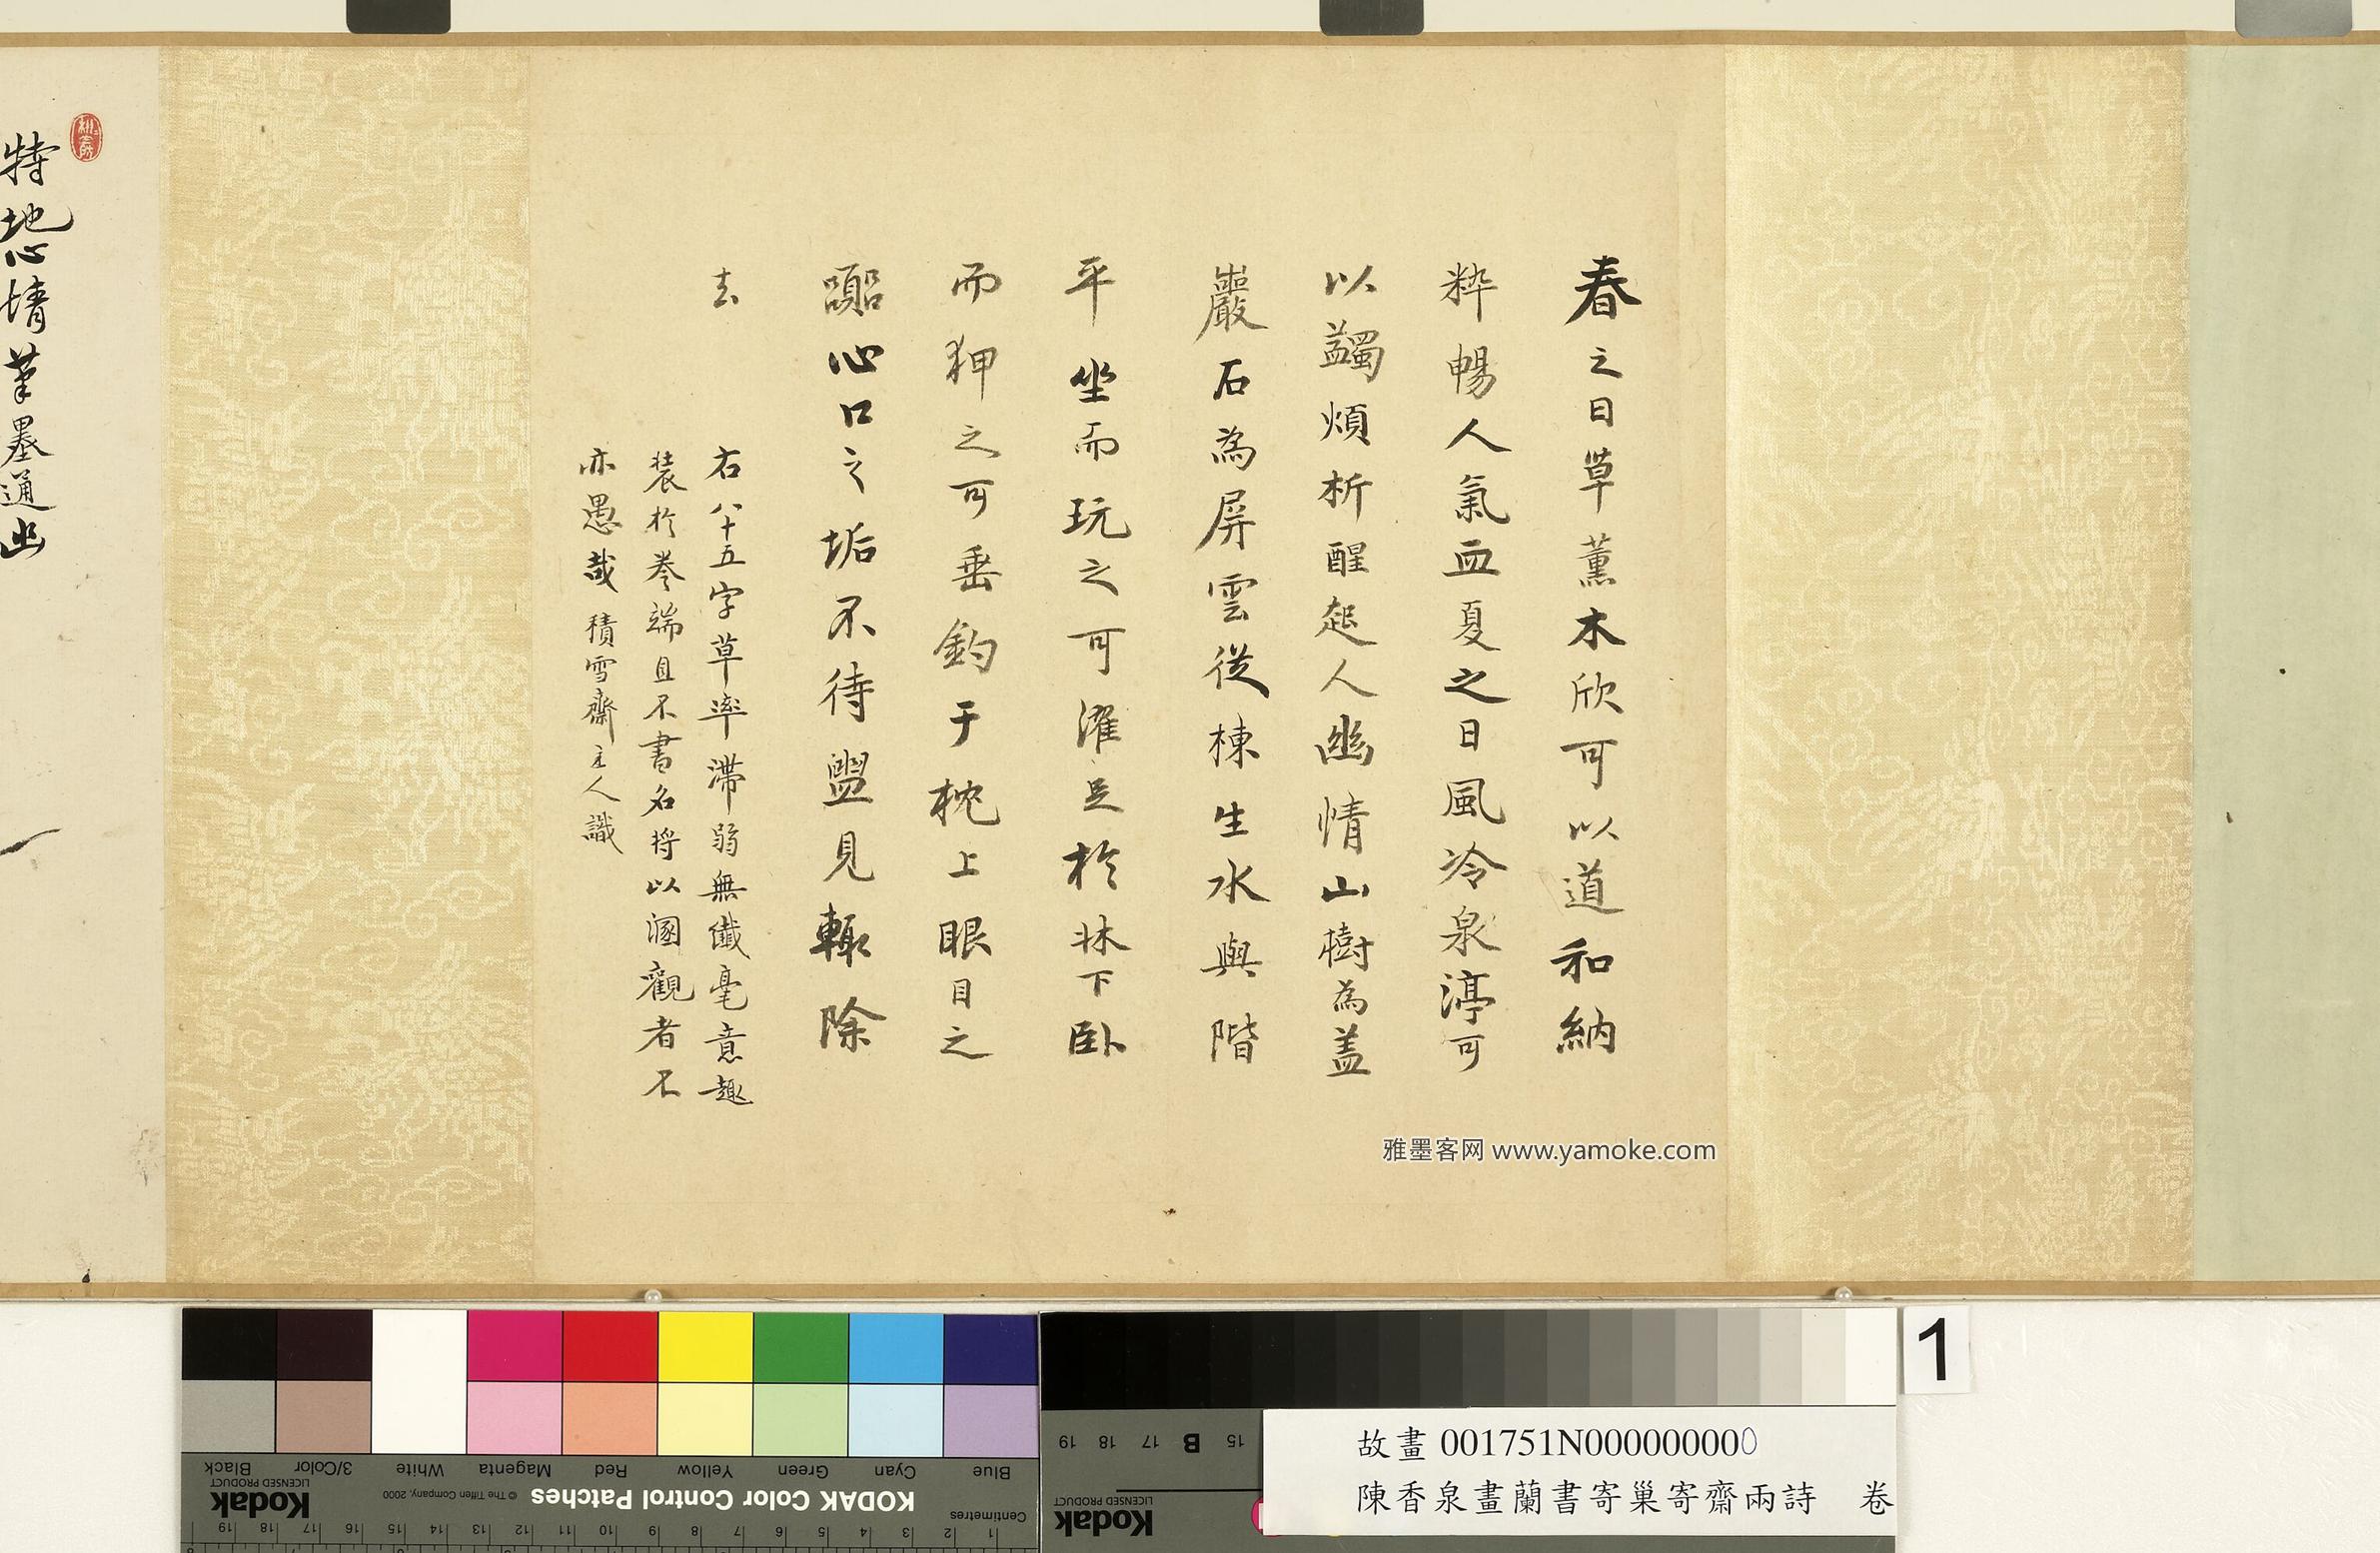 春之日草薰木欣可以道和納
粹暢人氣血夏之日風冷泉渟可
以蠲煩析醒起人幽情山樹為蓋
巖石為屏雲從棟生水與階
平坐而玩之可濯足於牀下臥
而狎之可垂釣于枕上眼目之
嚚心口之垢不待盥見輒除
去
右八十五字草率滯弱無纖毫意趣
装於卷端且不書名将以溷觀者不
亦愚哉 積雪齋主人識
特地心情筆墨通幽
雅墨客网 www.yamoke.com
1
Blue
Cyan
Green
Yellow
Red
Magenta
White
3/Color
Black
KODAK Color Control Patches
© The Tiffen Company, 2000
Kodak
LICENSED PRODUCT
Centimetres
1 2 3 4 5 6 7 8 9 10 11 12 13 14 15 16 17 18 19
15 B 17 18 19
Kodak
LICENSED PRODUCT
故畫 001751N000000000
陳香泉畫蘭書寄巢寄齋兩詩 卷